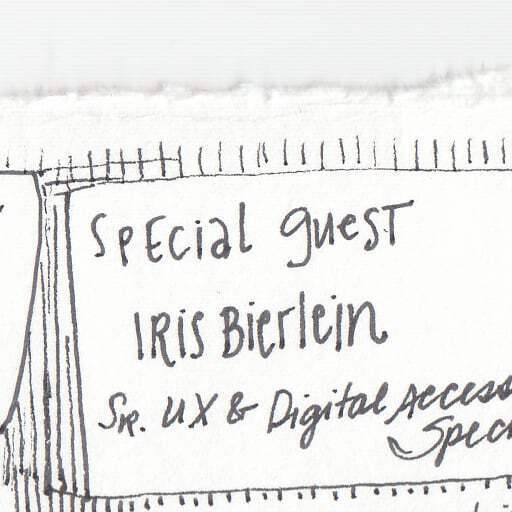 SPECial guesT
IRis Bierlein
SR. UX & Digital Access
Spec